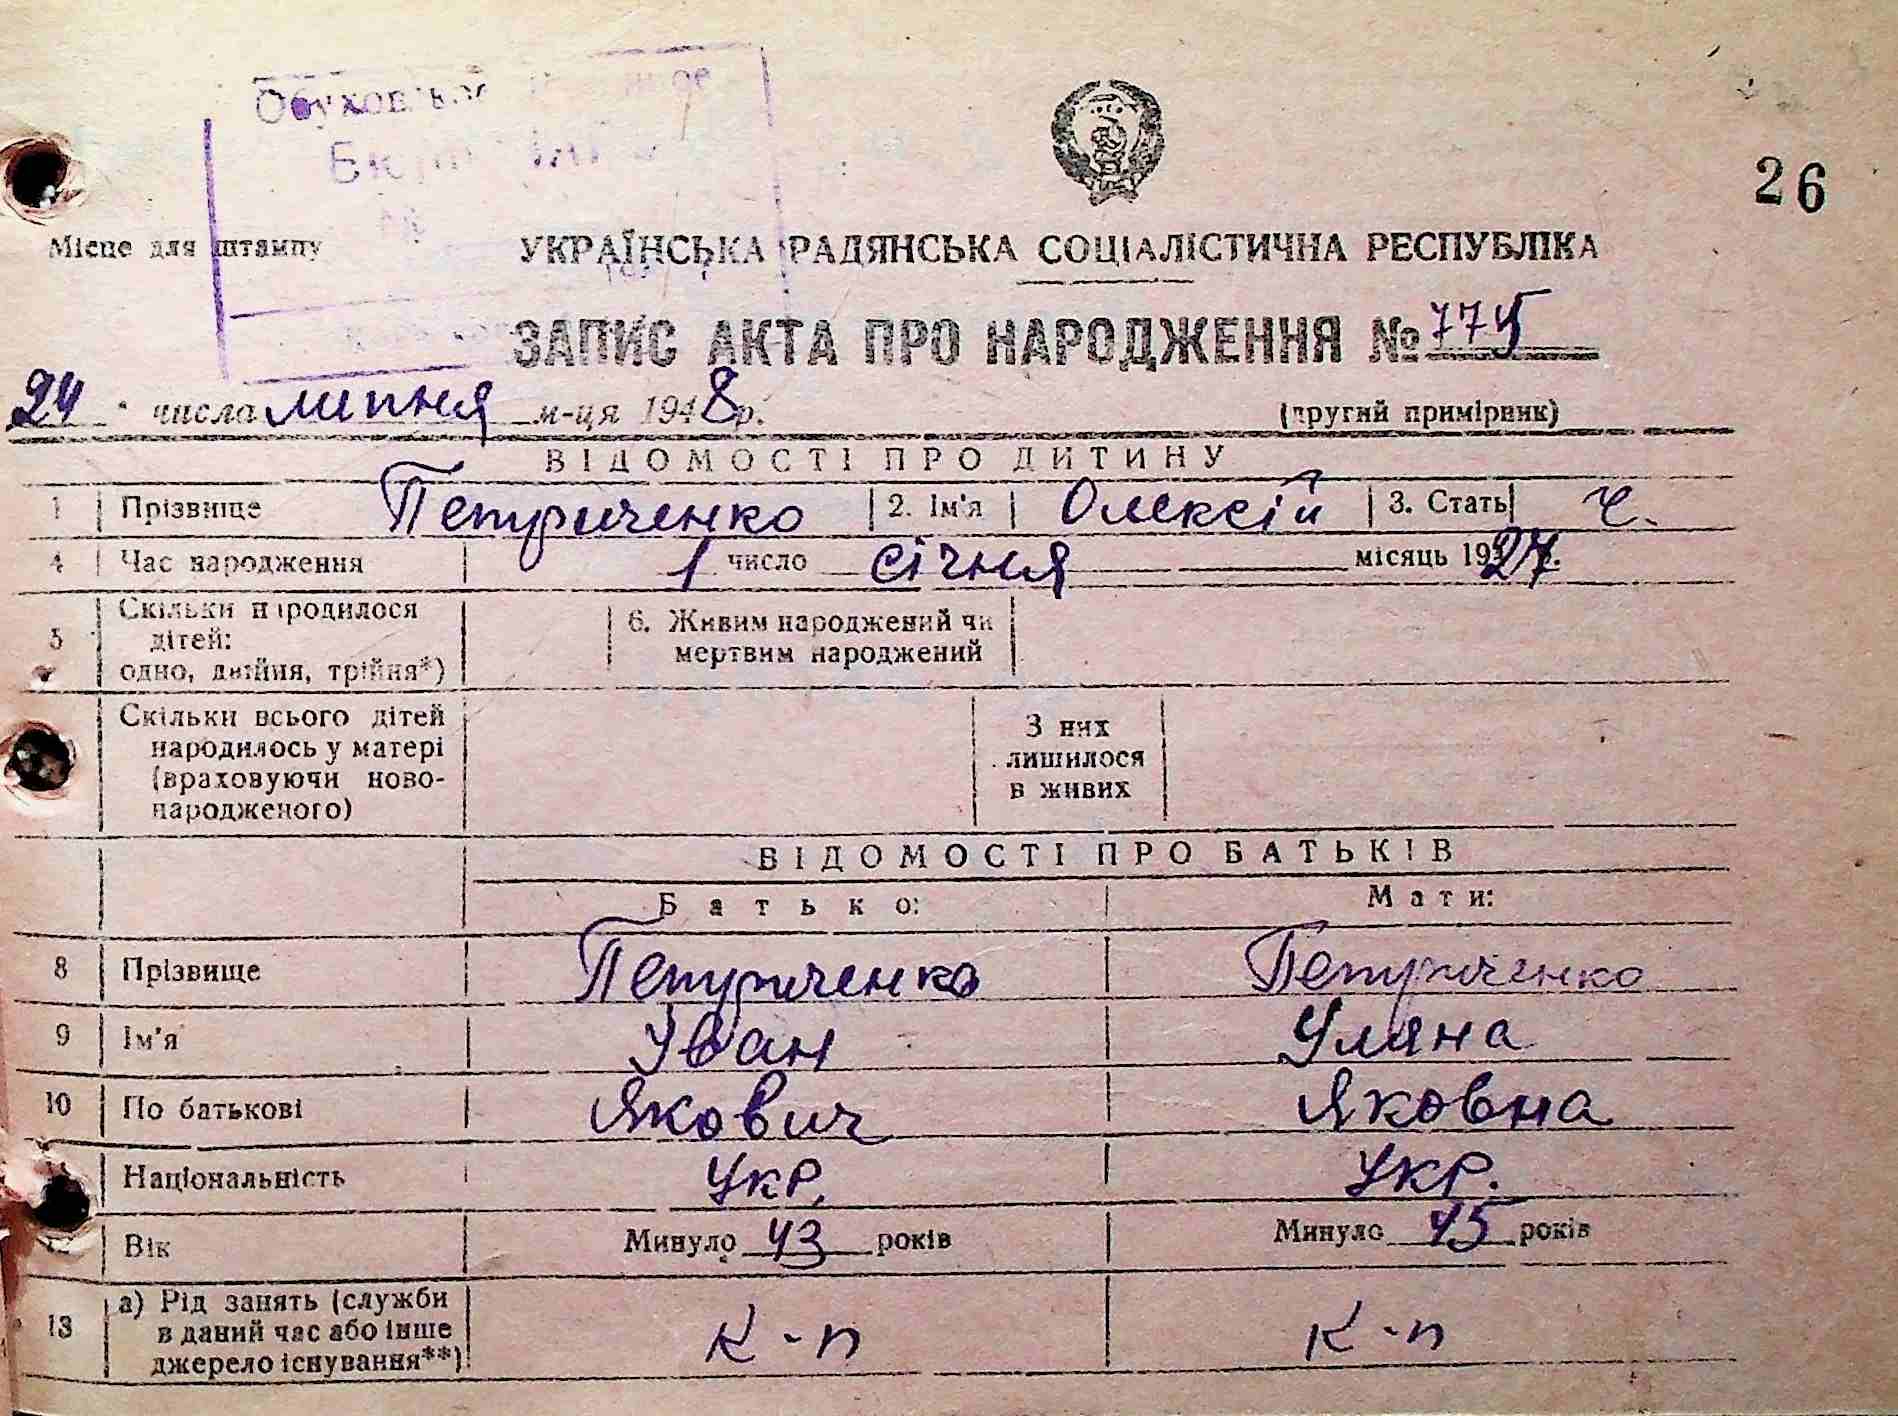 26
Місце для штампу
УКРАЇНСЬКА РАДЯНСЬКА СОЦІАЛІСТИЧНА РЕСПУБЛІКА
ЗАПИС АКТА ПРО НАРОДЖЕННЯ № 775
24 числа липня м-ця 1948 р. (другий примірник)
ВІДОМОСТІ ПРО ДИТИНУ
1 Прізвище Петриченко 2. Ім'я Олексій 3. Стать ч.
4 Час народження 1 число січня місяць 1927
5 Скільки народилося дітей: одно, двійня, трійня*) 6. Живим народжений чи мертвим народжений
Скільки всього дітей народилось у матері (враховуючи новонародженого) З них лишилося в живих
ВІДОМОСТІ ПРО БАТЬКІВ
Батько: Мати:
8 Прізвище Петриченко Петриченко
9 Ім'я Іван Уляна
10 По батькові Якович Яковна
Національність Укр. Укр.
12 Вік Минуло 43 років Минуло 45 років
13 а) Рід занять (служби в даний час або інше джерело існування**) К-п К-п